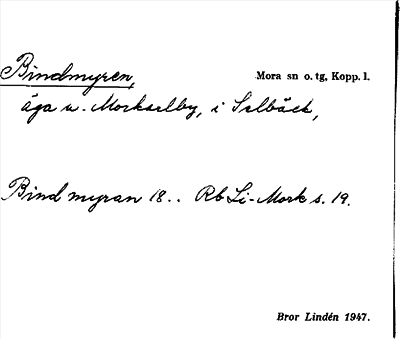 Bindmyren, Mora sn o. tg, Kopp. l.
äga u. Morkarlby, i Selbäck,
Bindmyran 18.. Rb Li-Mork s. 19.
Bror Lindén 1947.